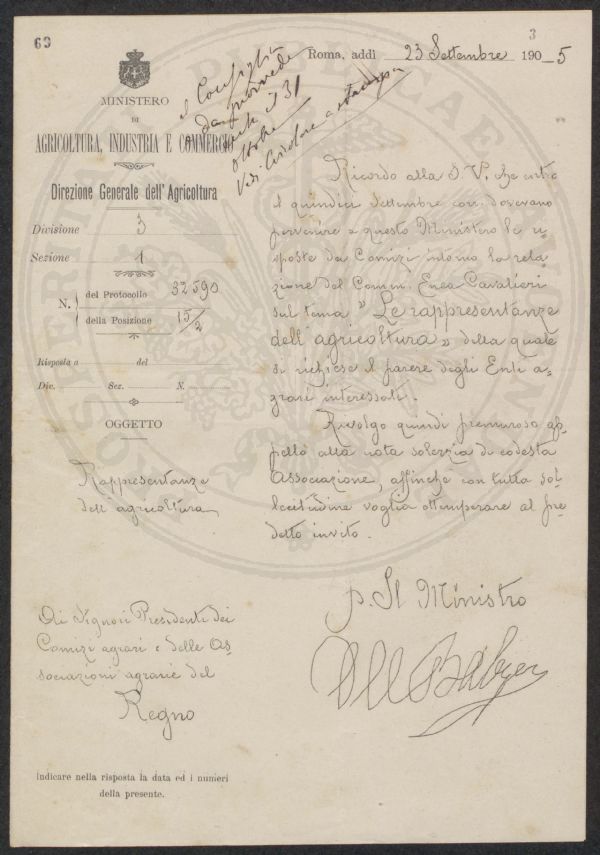 63
3
Roma, addì 23 Settembre 1905
MINISTERO
DI
AGRICOLTURA, INDUSTRIA E COMMERCIO
Direzione Generale dell'Agricoltura
Divisione 3
Sezione 1
N. del Protocollo 32590
della Posizione 15/2
Risposta a del
Div. Sez. N.
OGGETTO
Rappresentanze
dell'agricoltura
Ai Signori Presidenti dei
Comizi agrari e delle As-
sociazioni agrarie del
Regno
Indicare nella risposta la data ed i numeri
della presente.
il Consiglio
il 31
ottobre
Vedi Circolare a stampa
Ricordo alla S. V. che entro
il quindici Settembre corr. dovevano
pervenire a questo Ministero le ri-
sposte dei Comizi intorno la rela-
zione del Comm. Enea Cavalieri
sul tema "Le rappresentanze
dell'agricoltura" della quale
si richiese il parere degli Enti a-
grari interessati.
Rivolgo quindi premuroso ap-
pello alla nota solerzia di codesta
Associazione, affinchè con tutta sol-
lecitudine voglia ottemperare al pre-
detto invito.
p. Il Ministro